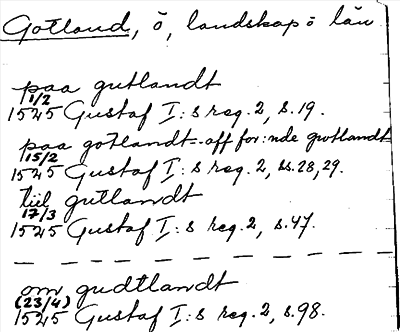 Gotland, ö, landskap o län
paa gutlandt
1/2
1525 Gustaf I:s reg. 2, s. 19.
paa gotlandt - aff for:nde gwtlandt
15/2
1525 Gustaf I:s reg. 2, ss. 28, 29.
tiil gutlandt
17/3
1525 Gustaf I:s reg. 2, s. 47.
om gudtlandt
(23/4)
1525 Gustaf I:s reg. 2, s. 98.